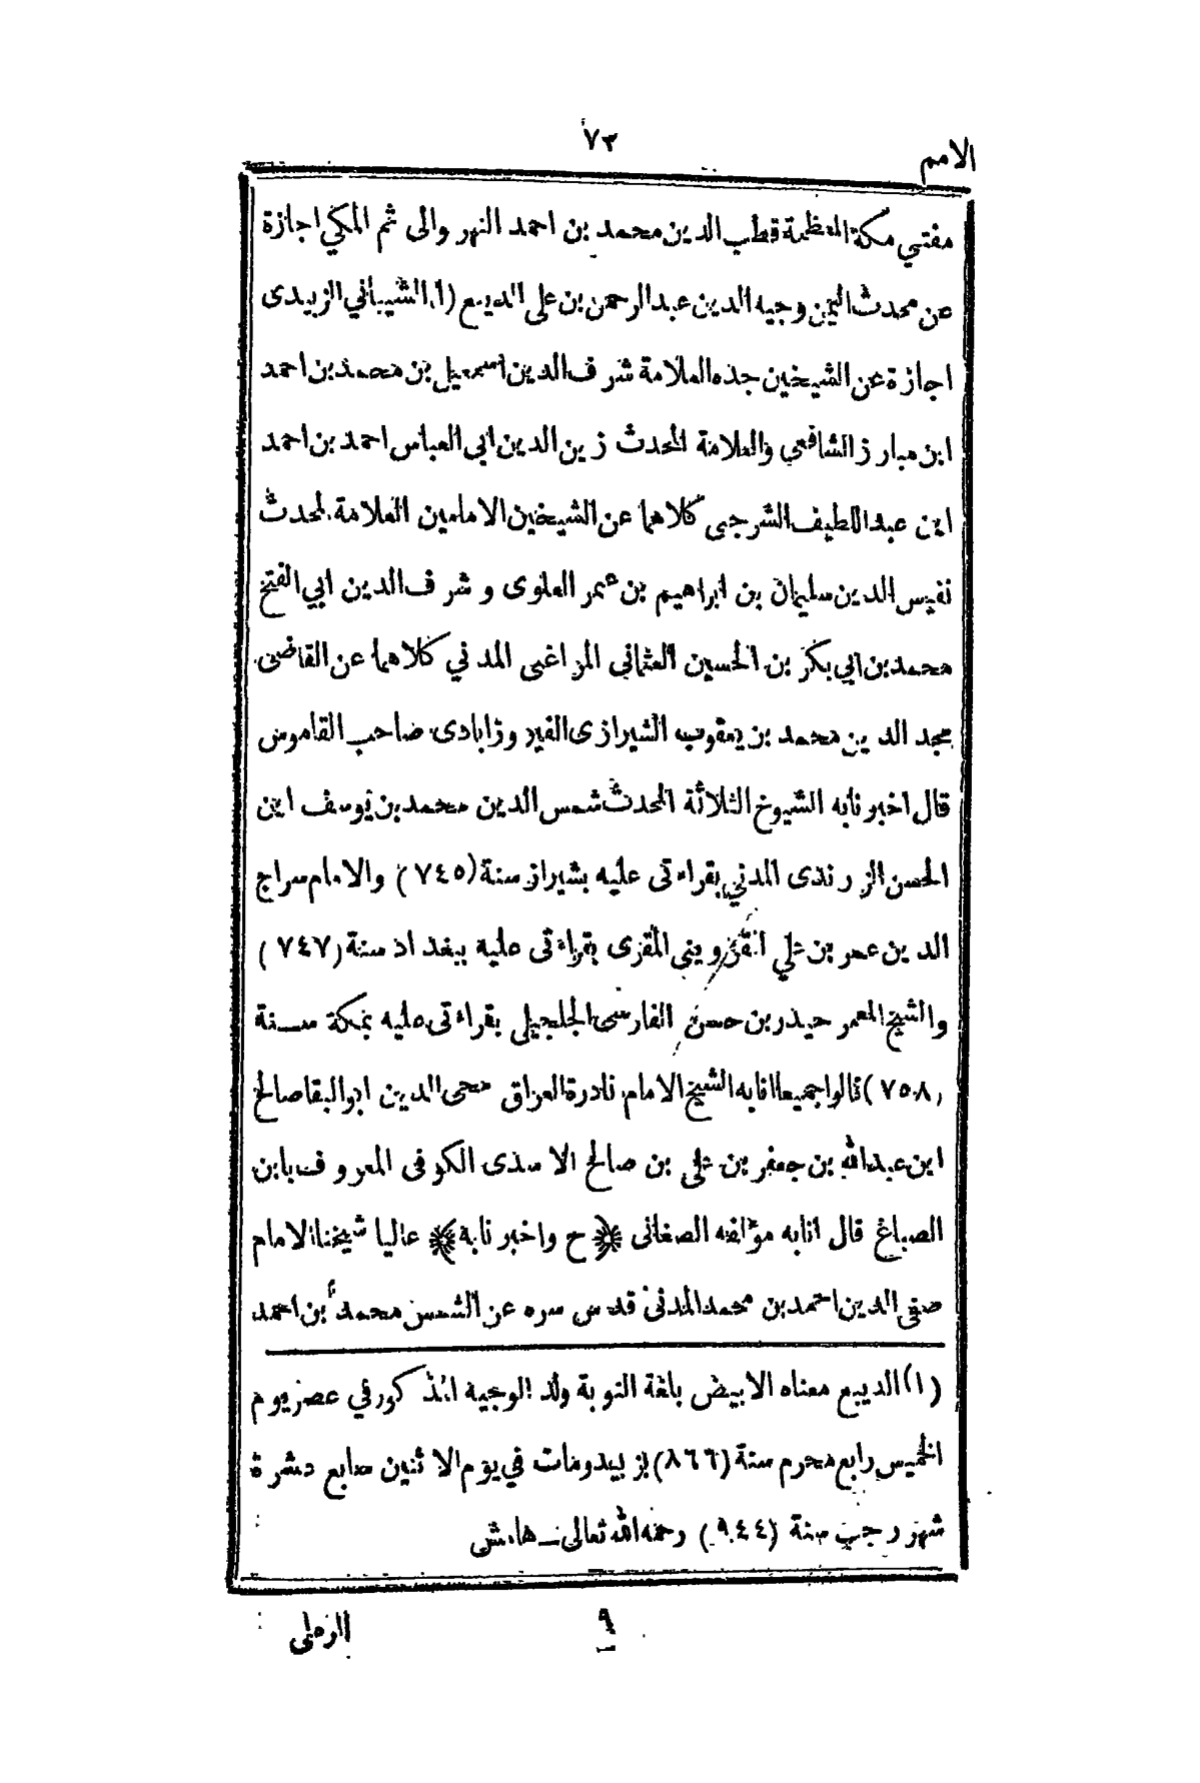 ٧٣
الامم
مفتي مكة المعظمة قطب الدين محمد بن احمد النهر والى ثم المكي اجازة
عن محدث اليمن وجيه الدين عبد الرحمن بن على الديبع (١) الشيباني الزبيدى
اجازة عن الشيخين جده العلامة شرف الدين اسمعيل بن محمد بن احمد
ابن مبارز الشافعي والعلامة المحدث زين الدين ابي العباس احمد بن احمد
ابن عبد اللطيف الشرجى كلاهما عن الشيخين الامامين العلامة المحدث
نفيس الدين سليمان بن ابراهيم بن عمر العلوى وشرف الدين ابي الفتح
محمد بن ابي بكر بن الحسين العثمانى المراغى المدني كلاهما عن القاضى
مجد الدين محمد بن يعقوب الشيرازى الفيروزابادى صاحب القاموس
قال اخبرنا به الشيوخ الثلاثة المحدث شمس الدين محمد بن يوسف ابن
الحسن الزرندى المدني بقراءتى عليه بشيراز سنة (٧٤٥) والامام سراج
الدين عمر بن علي القزوينى المقرى بقراءتى عليه ببغداد سنة (٧٤٧)
والشيخ المعمر حيدر بن حسن الفارسى الجلجيلى بقراءتى عليه بمكة سنة
(٧٥٨) قالوا جميعا انا به الشيخ الامام نادرة العراق محى الدين ابو البقا صالح
ابن عبد الله بن جعفر بن على بن صالح الاسدى الكوفى المعروف بابن
الصباغ قال انا به مؤلفه الصغانى ﴿ح واخبرنا به﴾ عاليا شيخنا الامام
صفى الدين احمد بن محمد المدنى قدس سره عن الشمس محمد بن احمد
(١) الديبع معناه الابيض بلغة النوبة ولد الوجيه المذكور في عصر يوم
الخميس رابع محرم سنة (٨٦٦) بزبيد ومات في يوم الاثنين سابع عشرة
شهر رجب سنة (٩٤٤) رحمه الله تعالى ــ هامش
٩
الرملى